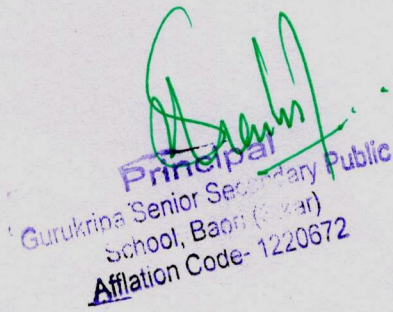 Principal
Gurukripa Senior Secondary Public
School, Baori
Afflation Code- 1220672